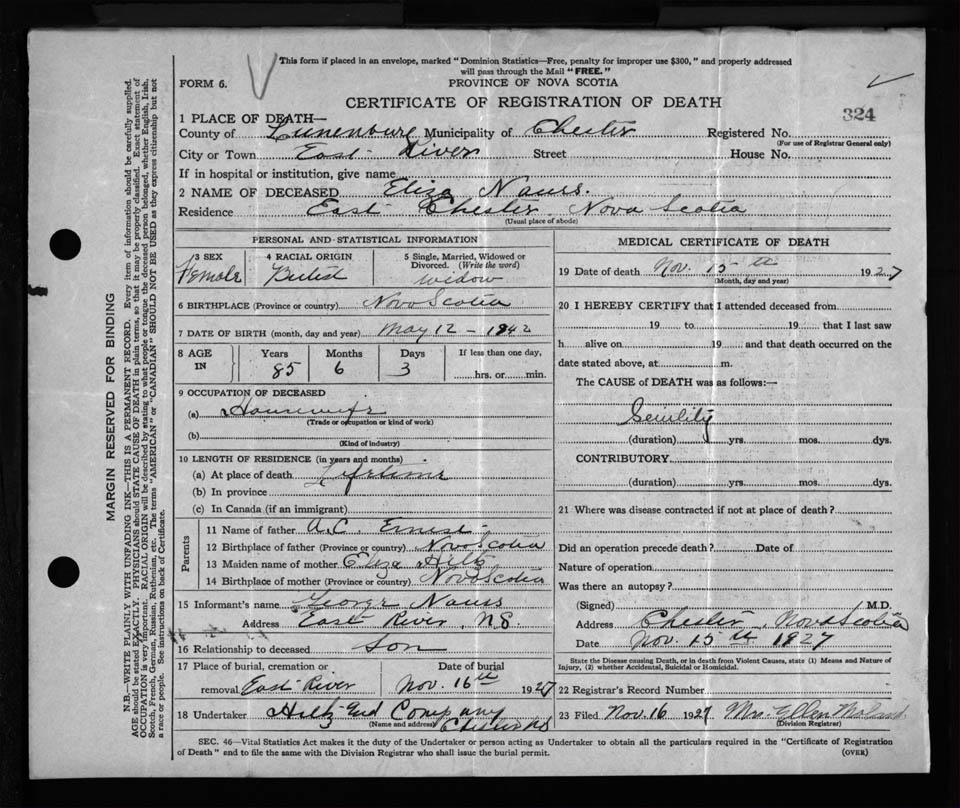 This form if placed in an envelope, marked "Dominion Statistics—Free, penalty for improper use $300," and properly addressed
will pass through the Mail "FREE."
FORM 6.
PROVINCE OF NOVA SCOTIA
CERTIFICATE OF REGISTRATION OF DEATH
324
1 PLACE OF DEATH—
County of Lunenburg Municipality of Chester Registered No.
(For use of Registrar General only)
City or Town East River Street House No.
If in hospital or institution, give name
2 NAME OF DECEASED Eliza Nauss.
Residence East Chester Nova Scotia
(Usual place of abode)
PERSONAL AND STATISTICAL INFORMATION
3 SEX 4 RACIAL ORIGIN 5 Single, Married, Widowed or
Divorced. (Write the word)
Female widow
6 BIRTHPLACE (Province or country) Nova Scotia
7 DATE OF BIRTH (month, day and year) May 12 - 1842
8 AGE IN Years Months Days If less than one day,
85 6 3 hrs. or min.
9 OCCUPATION OF DECEASED
(a) Housewife
(Trade or occupation or kind of work)
(b)
(Kind of industry)
10 LENGTH OF RESIDENCE (in years and months)
(a) At place of death Lifetime
(b) In province
(c) In Canada (if an immigrant)
Parents
11 Name of father A.C. Ernest
12 Birthplace of father (Province or country) Nova Scotia
13 Maiden name of mother Eliza Hiltz
14 Birthplace of mother (Province or country) Nova Scotia
15 Informant's name George Nauss
Address East River, N.S.
16 Relationship to deceased Son
17 Place of burial, cremation or Date of burial
removal East River Nov. 16th 1927
18 Undertaker Hiltz and Company
(Name and address) Chester NS
MEDICAL CERTIFICATE OF DEATH
19 Date of death Nov. 15th 1927
(Month, day and year)
20 I HEREBY CERTIFY that I attended deceased from
19 to 19 that I last saw
h alive on 19 and that death occurred on the
date stated above, at m.
The CAUSE of DEATH was as follows:—
Senility
(duration) yrs. mos. dys.
CONTRIBUTORY
(duration) yrs. mos. dys.
21 Where was disease contracted if not at place of death?
Did an operation precede death? Date of
Nature of operation
Was there an autopsy?
(Signed) M.D.
Address Chester, Nova Scotia
Date Nov. 15th 1927
State the Disease causing Death, or in death from Violent Causes, state (1) Means and Nature of
Injury, (2) whether Accidental, Suicidal or Homicidal.
22 Registrar's Record Number
23 Filed Nov 16 1927 Mrs Ellen
(Division Registrar)
SEC. 46—Vital Statistics Act makes it the duty of the Undertaker or person acting as Undertaker to obtain all the particulars required in the "Certificate of Registration
of Death" and to file the same with the Division Registrar who shall issue the burial permit. (OVER)
MARGIN RESERVED FOR BINDING
N.B.—WRITE PLAINLY WITH UNFADING INK—THIS IS A PERMANENT RECORD. Every item of information should be carefully supplied.
AGE should be stated EXACTLY. PHYSICIANS should STATE CAUSE OF DEATH in plain terms, so that it may be properly classified. Exact statement of
OCCUPATION is very important. RACIAL ORIGIN will be described by stating to what people or tongue the deceased person belonged, whether English, Irish,
Scotch, French, German, Russian, Ruthenian, etc. The terms "AMERICAN" or "CANADIAN" SHOULD NOT BE USED as they express citizenship but not
a race or people. See instructions on back of Certificate.